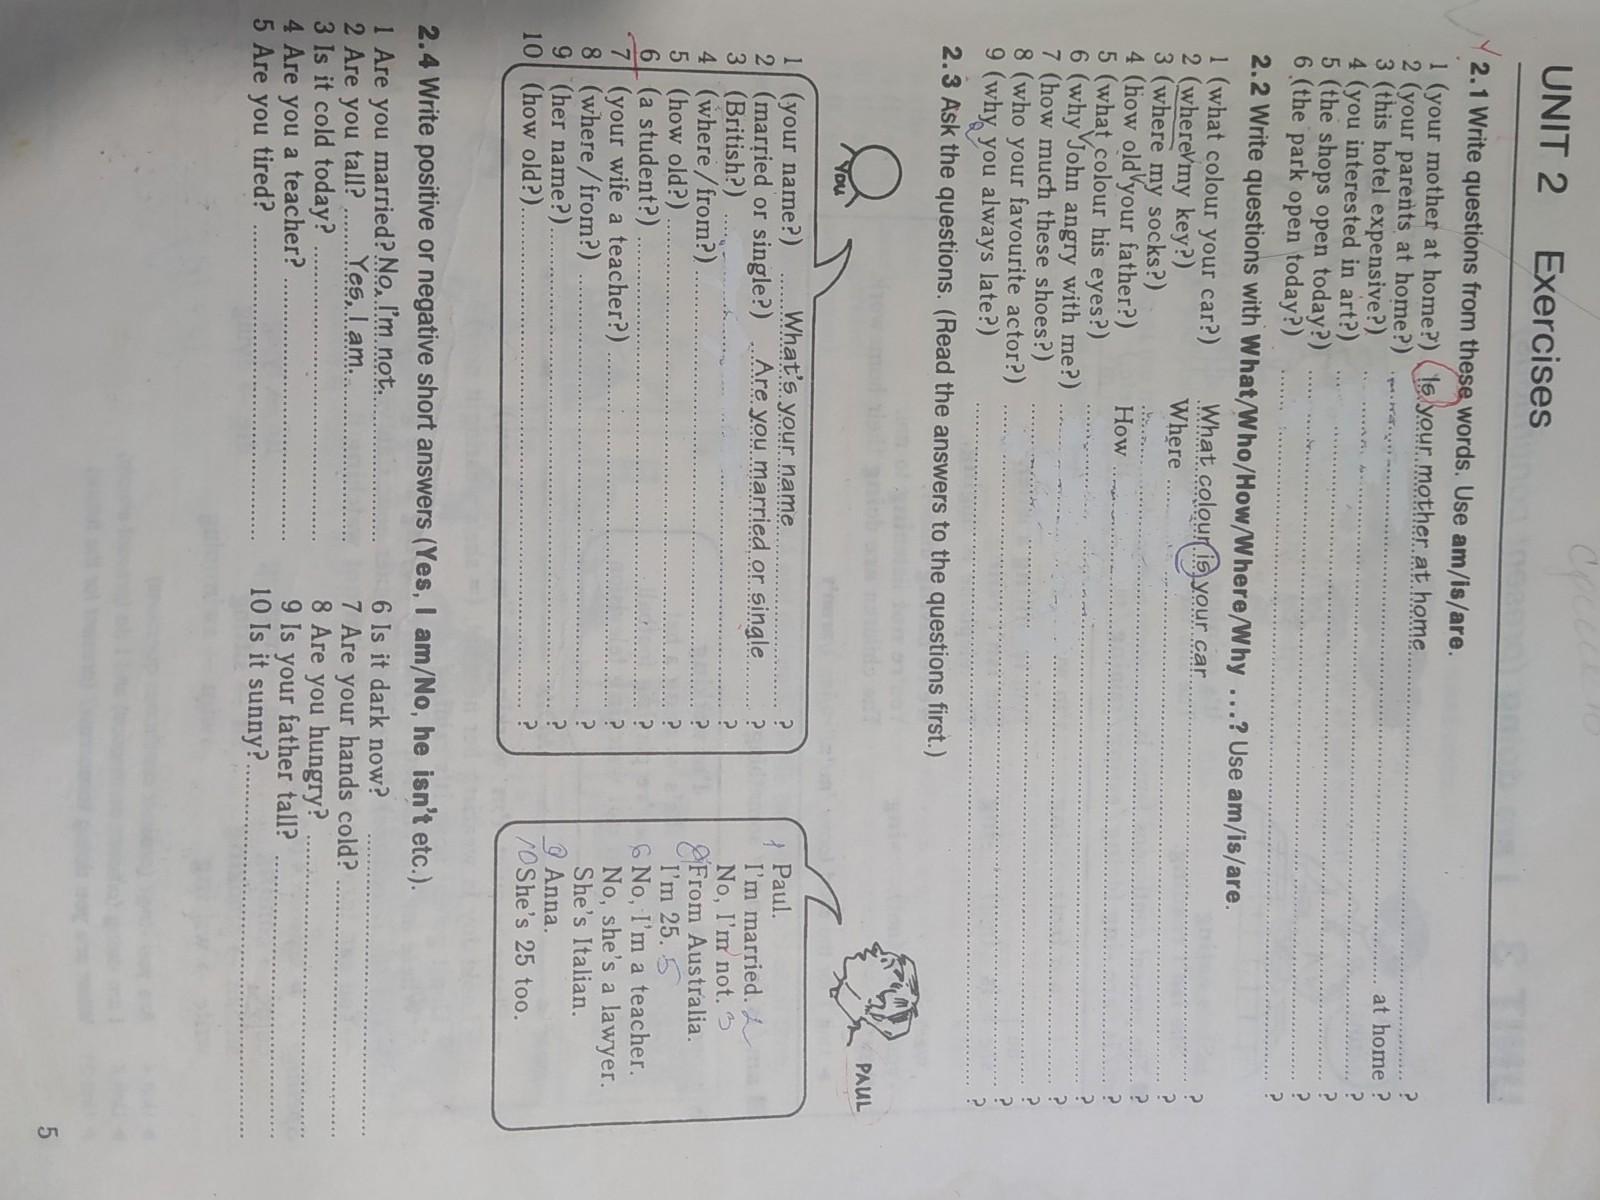 UNIT 2 Exercises
2.1 Write questions from these words. Use am/is/are.
1 (your mother at home?) Is your mother at home ?
2 (your parents at home?) at home ?
3 (this hotel expensive?) ?
4 (you interested in art?) ?
5 (the shops open today?) ?
6 (the park open today?) ?
2.2 Write questions with What/Who/How/Where/Why ...? Use am/is/are.
1 (what colour your car?) What colour is your car ?
2 (where my key?) Where ?
3 (where my socks?) ?
4 (how old your father?) How ?
5 (what colour his eyes?) ?
6 (why John angry with me?) ?
7 (how much these shoes?) ?
8 (who your favourite actor?) ?
9 (why you always late?) ?
2.3 Ask the questions. (Read the answers to the questions first.)
YOU
PAUL
1 (your name?) What's your name ?
2 (married or single?) Are you married or single ?
3 (British?) ?
4 (where/from?) ?
5 (how old?) ?
6 (a student?) ?
7 (your wife a teacher?) ?
8 (where/from?) ?
9 (her name?) ?
10 (how old?) ?
1 Paul.
I'm married. 2
No, I'm not. 3
From Australia.
I'm 25. 5
6 No, I'm a teacher.
No, she's a lawyer.
She's Italian.
9 Anna.
10 She's 25 too.
2.4 Write positive or negative short answers (Yes, I am/No, he isn't etc.).
1 Are you married? No, I'm not.
2 Are you tall? Yes, I am.
3 Is it cold today?
4 Are you a teacher?
5 Are you tired?
6 Is it dark now?
7 Are your hands cold?
8 Are you hungry?
9 Is your father tall?
10 Is it sunny?
5